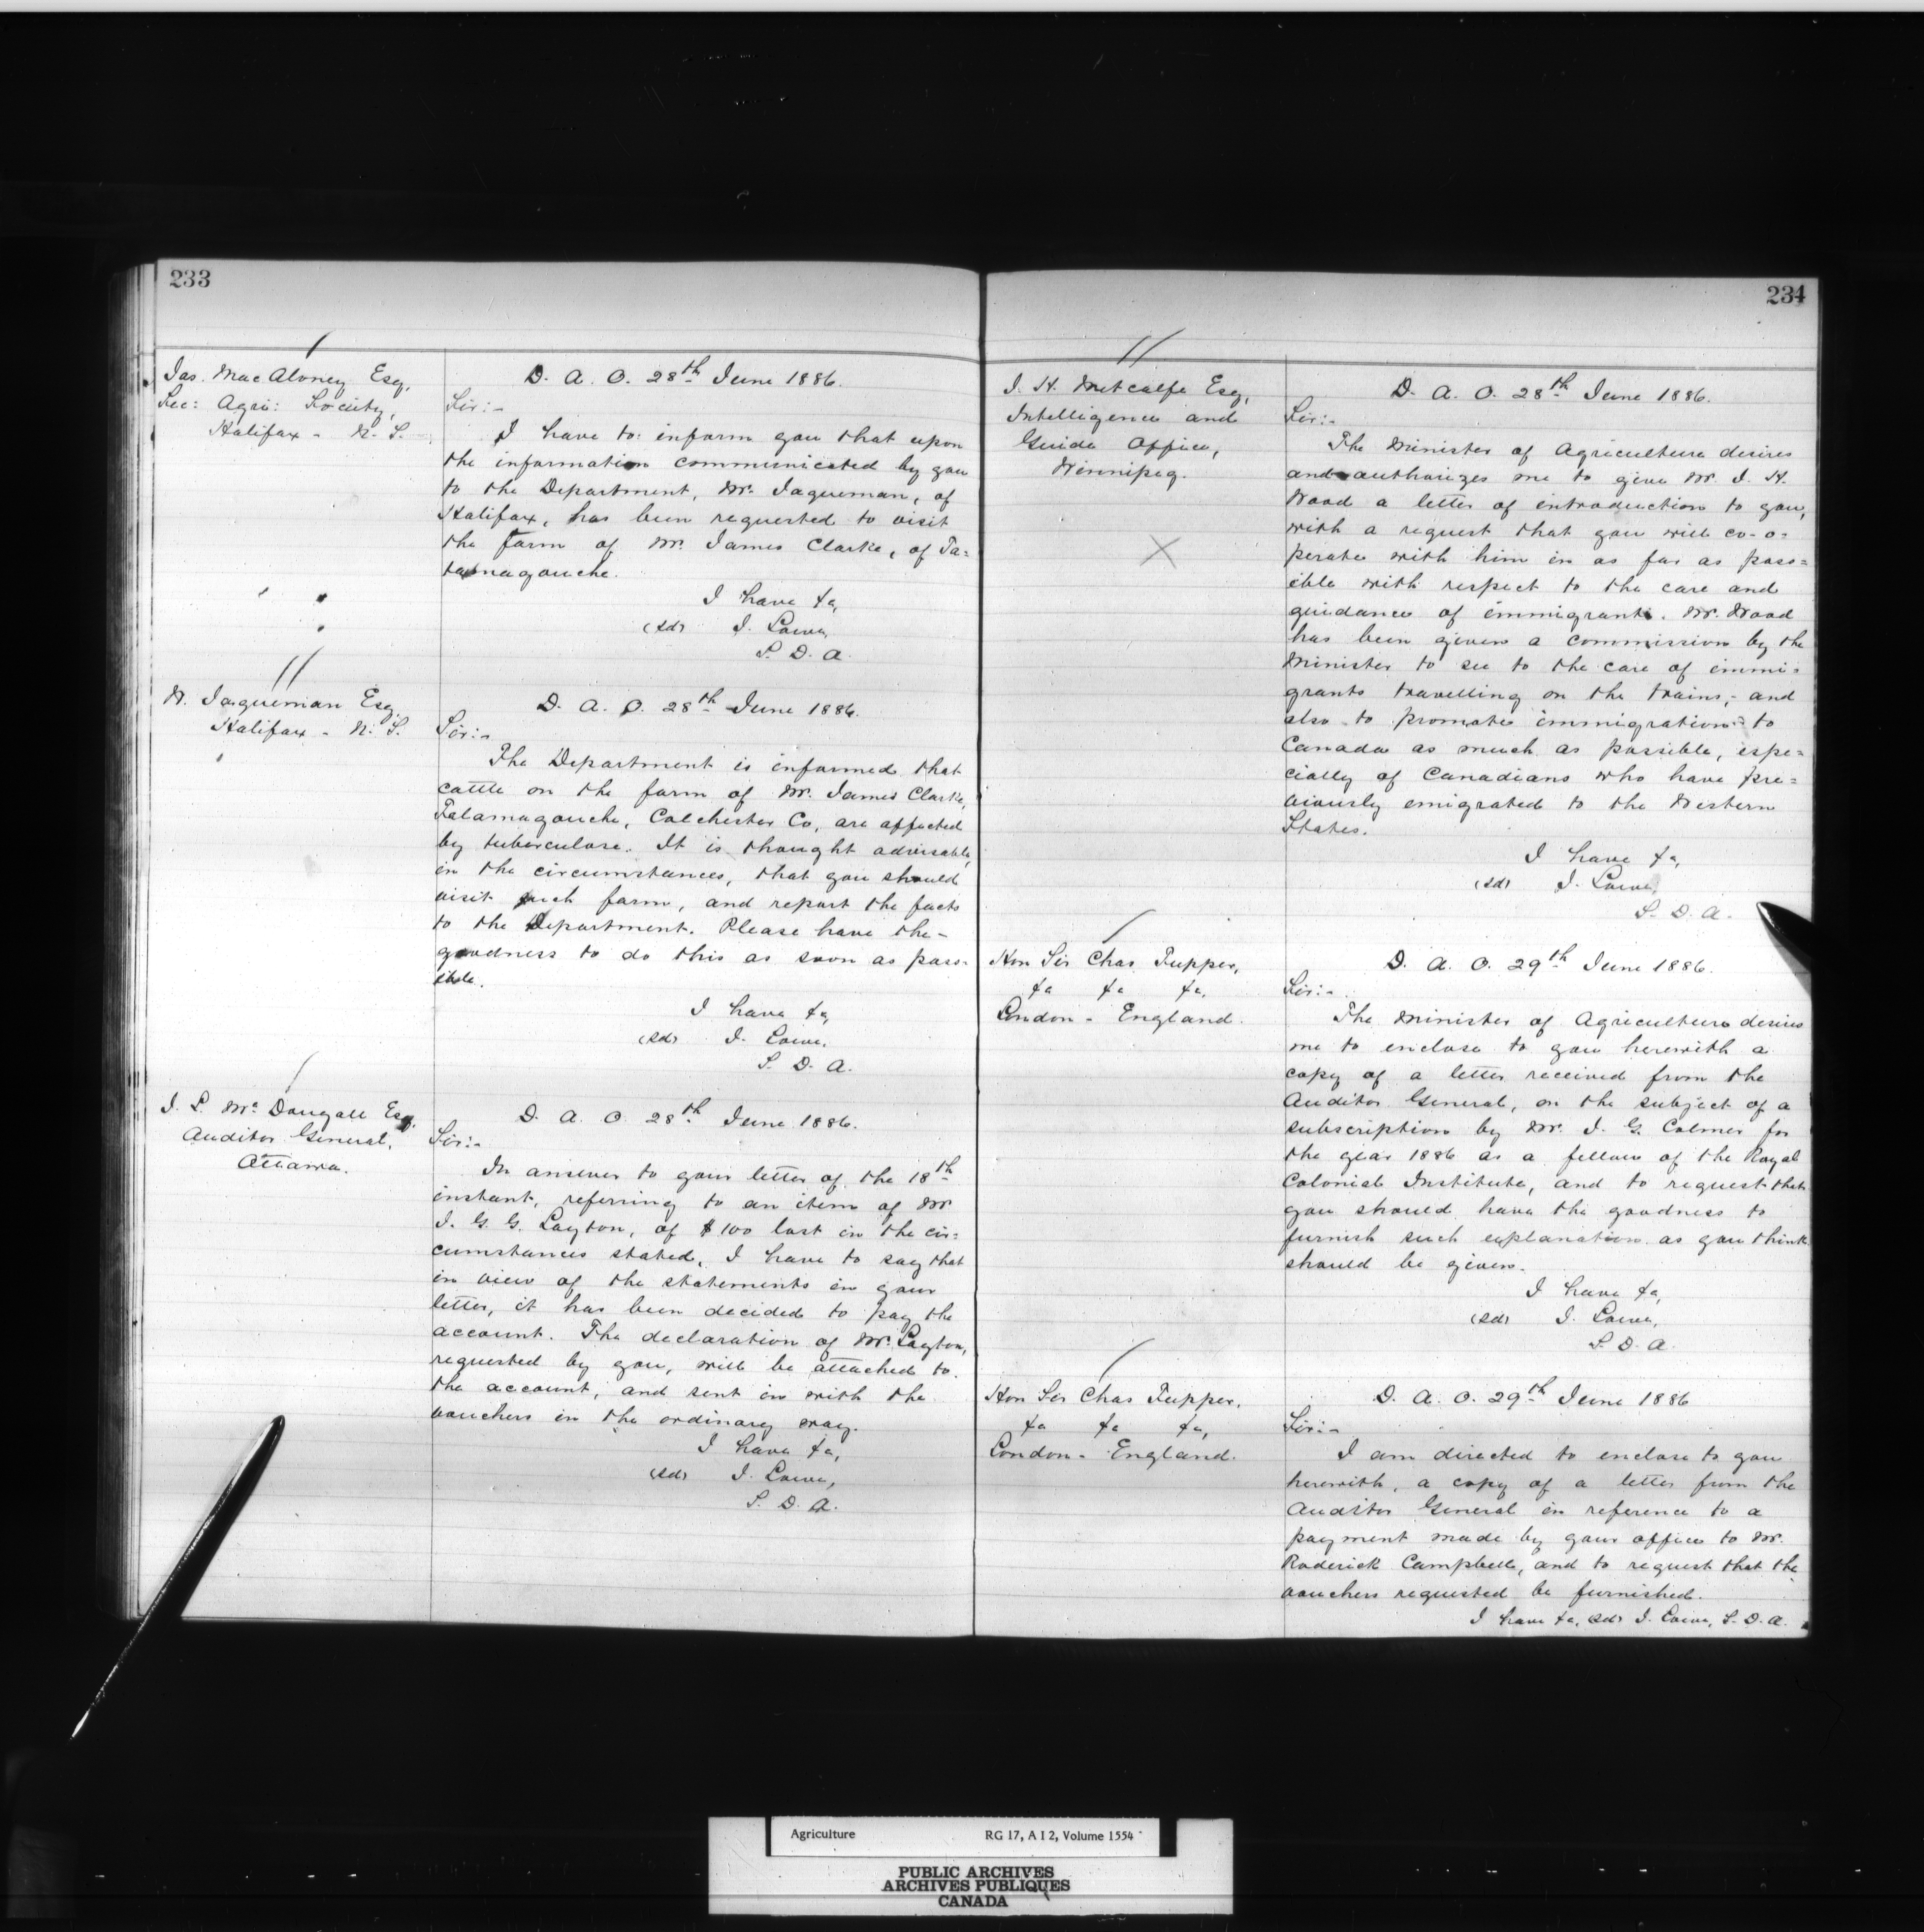 233
Jas. MacAloney Esq,
Sec: Agri: Society,
Halifax - N. S.
D. A. O. 28th June 1886.
Sir:-
I have to inform you that upon
the information communicated by you
to the Department, Mr. Jaqueman, of
Halifax, has been requested to visit
the farm of Mr. James Clarke, of Ta=
tamagouche.
I have &c,
(sd) J. Lowe,
S. D. A.
W. Jaqueman Esq,
Halifax - N. S.
D. A. O. 28th June 1886.
Sir:-
The Department is informed that
cattle on the farm of Mr. James Clarke,
Tatamagouche, Colchester Co, are affected
by tuberculose. It is thought advisable,
in the circumstances, that you should
visit such farm, and report the facts
to the Department. Please have the-
goodness to do this as soon as poss-
ible.
I have &c,
(sd) J. Lowe,
S. D. A.
J. L. McDougall Esq,
Auditor General,
Ottawa.
D. A. O. 28th June 1886.
Sir:-
In answer to your letter of the 18th
instant, referring to an item of Mr
J. G. G. Layton, of $100 lost in the cir=
cumstances stated, I have to say that
in view of the statements in your
letter, it has been decided to pay the
account. The declaration of Mr. Layton,
requested by you, will be attached to
the account, and sent in with the
vouchers in the ordinary way.
I have &c,
(sd) J. Lowe,
S. D. A.
234
J. H. Metcalfe Esq,
Intelligence and
Guide Office,
Winnipeg.
D. A. O. 28th June 1886.
Sir:-
The Minister of Agriculture desires
and authorizes me to give Mr. J. H.
Wood a letter of introduction to you,
with a request that you will co-o-
perate with him in as far as poss=
ible with respect to the care and
guidance of immigrants. Mr. Wood
has been given a commission by the
Minister to see to the care of immi=
grants travelling on the trains; and
also to promote immigration to
Canada as much as possible, espe=
cially of Canadians who have pre=
viously emigrated to the Western
States.
I have &c,
(sd) J. Lowe,
S. D. A.
Hon Sir Chas Tupper,
&c &c &c,
London - England.
D. A. O. 29th June 1886.
Sir:-
The Minister of Agriculture desires
me to enclose to you herewith a
copy of a letter received from the
Auditor General, on the subject of a
subscription by Mr. J. G. Colmer for
the year 1886 as a fellow of the Royal
Colonial Institute, and to request that
you should have the goodness to
furnish such explanation as you think
should be given.
I have &c,
(sd) J. Lowe,
S. D. A.
Hon Sir Chas Tupper,
&c &c &c,
London - England.
D. A. O. 29th June 1886
Sir:-
I am directed to enclose to you
herewith, a copy of a letter from the
Auditor General in reference to a
payment made by your office to Mr.
Roderick Campbell, and to request that the
vouchers requested be furnished.
I have &c, (sd) J. Lowe, S. D. A.
Agriculture RG 17, A I 2, Volume 1554
PUBLIC ARCHIVES
ARCHIVES PUBLIQUES
CANADA